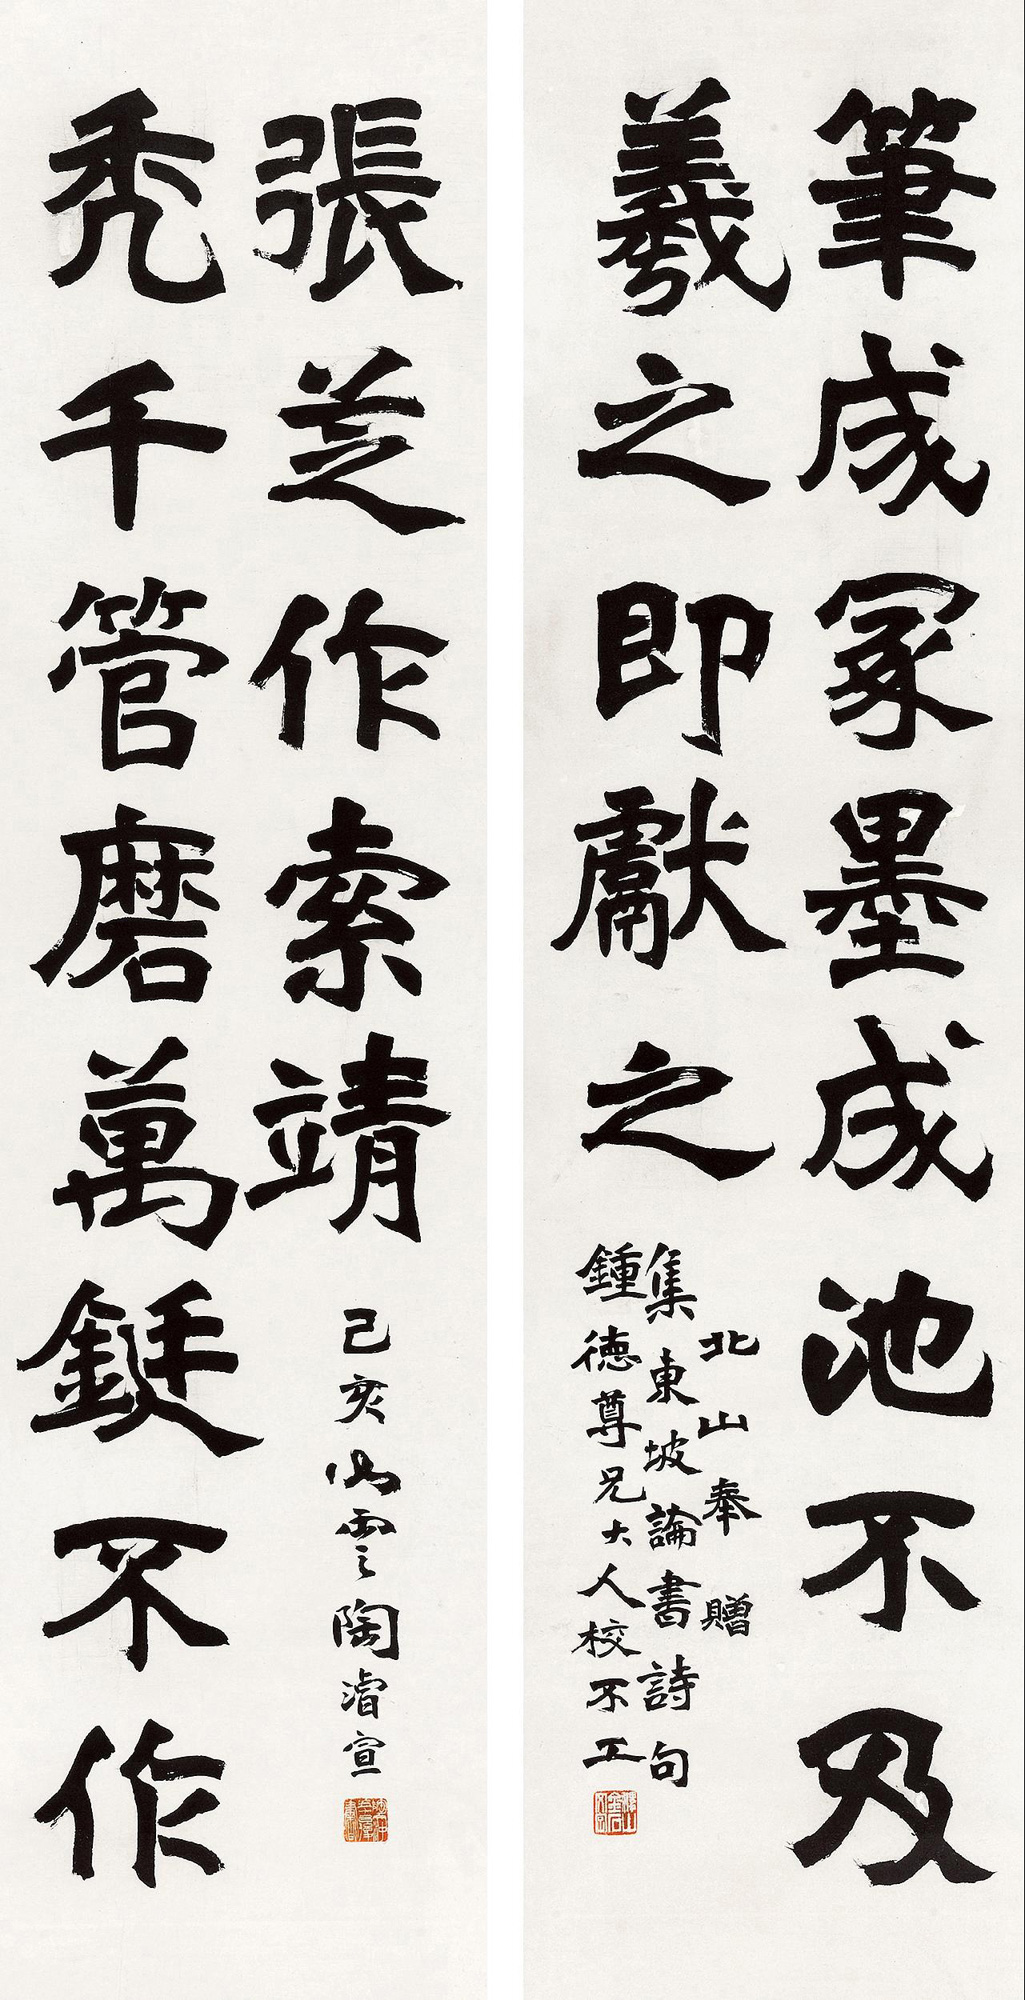 筆成冢墨成池不及
羲之即獻之
北山奉贈
集東坡論書詩句
鍾德尊兄大人校不工
禿千管磨萬鋌不作
張芝作索靖
己亥心雲陶濬宣